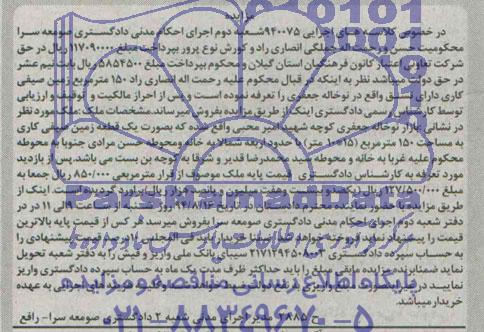 مزایده
در خصوص کلاسه های اجرایی ۹۴۰۰۷۵ شعبه دوم اجرای احکام مدنی دادگستری صومعه سرا
محکومیت حسن و رحمت اله جملگی انصاری راد و کورش نوع پرور بپرداخت مبلغ ۱۱۷۰۹۰۰۰۰ ریال در حق
شرکت تعاونی اعتبار کانون فرهنگیان استان گیلان و محکوم بپرداخت مبلغ ۵۸۵۴۵۰۰ ریال بابت نیم عشر
در حق دولت میباشد نظر به اینکه در قبال محکوم علیه رحمت اله انصاری راد ۱۵۰ مترمربع زمین صیفی
کاری دارای سند عادی واقع در نوخاله جعفری را تعرفه نموده است و پس از احراز مالکیت و توقیف و ارزیابی
توسط کارشناس رسمی دادگستری اینک از طریق مزایده بفروش میرساند. مشخصات ملک: ملک مورد نظر
در نشانی بازار نوخاله جعفری کوچه شهید امیر محبی واقع شده که بصورت یک قطعه زمین صیفی کاری
به مساحت ۱۵۰ مترمربع (۱۵*۱۰ متر) با حدود اربعه شمالا به خانه و محوطه حسن مرادی جنوبا به محوطه
محکوم علیه غربا به خانه و محوطه سید محمدرضا قدیر و شرقا به کوچه بن بست می باشد. پس از بازدید
مورد تعرفه به کارشناس دادگستری قیمت پایه ملک موصوف از قرار مترمربعی ۸۵۰/۰۰۰ ریال جمعا به
مبلغ ۱۲۷/۵۰۰/۰۰۰ ریال (یکصد و بیست و هفت میلیون و پانصد هزار ریال) برآورد گردیده است. اینک از
طریق مزایده با حضور نماینده محترم دادستان در تاریخ ۹۴/۸/۱۶ روز شنبه از ساعت ۹ الی ۱۱ در
دفتر شعبه دوم اجرای احکام مدنی دادگستری صومعه سرا بفروش میرسد هر کس از قیمت پایه بالاترین
قیمت را پیشنهاد نماید فروخته خواهد شد.
به حساب سپرده دادگستری سیبای بانک ملی واریز و فیش را به دفتر شعبه تحویل
نماید ضمنا برنده مزایده مابقی مبلغ را باید حداکثر ظرف مدت یک ماه به حساب سپرده دادگستری واریز
نماید
خریدار میباشد.
ح ۲۸۸۵ مدیر اجرای مدنی شعبه ۲ دادگستری صومعه سرا- رافع
پایگاه اطلاع رسانی مناقصه و مزایده
۰۲۱-۸۸۳۴۹۶۷۰-۵